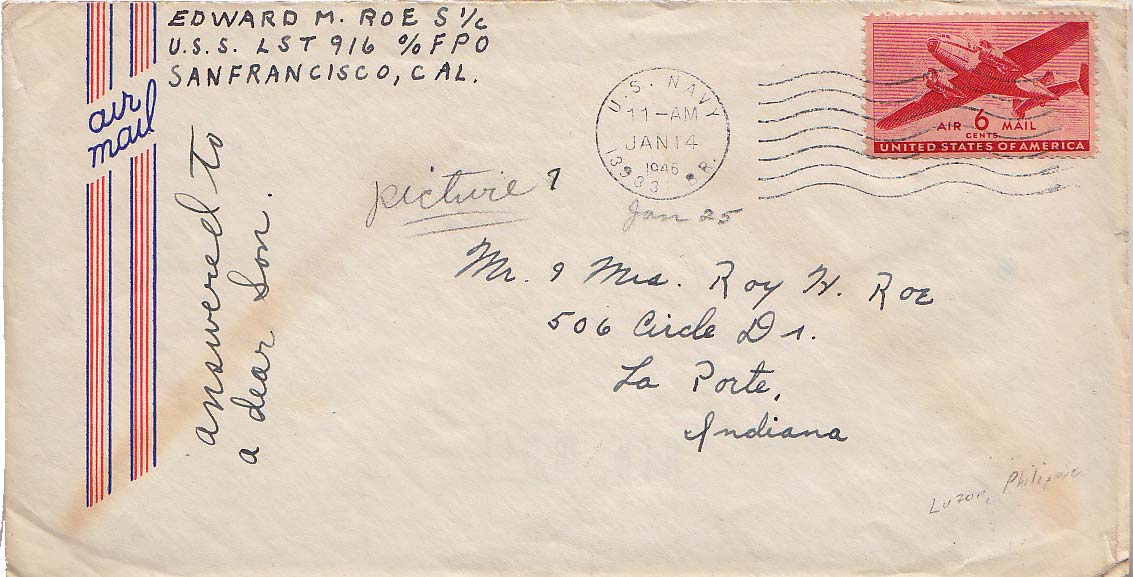 EDWARD M. ROE S 1/c
U.S.S. LST 916 % FPO
SANFRANCISCO, CAL.
air
mail
U.S. NAVY
11-AM
JAN 14
1946
13933 BR.
AIR 6 MAIL
CENTS
UNITED STATES OF AMERICA
answered to
a dear Son.
picture
Jan 25
Mr. & Mrs. Roy H. Roe
506 Circle Dr.
La Porte,
Indiana
Luzon, Philippine